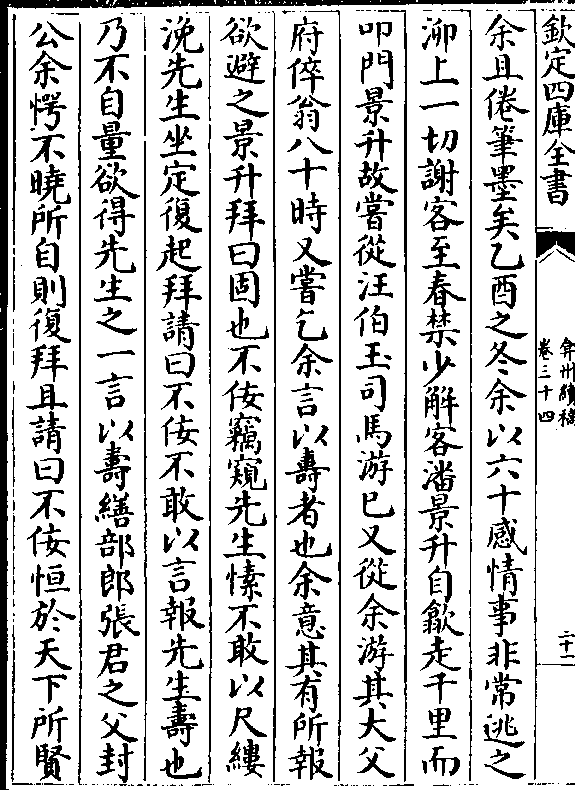 欽定四庫全書
弇州續稿
卷三十四
二十一
余且倦筆墨矣乙酉之冬余以六十感情事非常逃之
泖上一切謝客至春禁少解客潘景升自歙走千里而
叩門景升故嘗從汪伯玉司馬游已又從余游其大父
府倅翁八十時又嘗乞余言以壽者也余意其有所報
欲避之景升拜曰固也不佞竊窺先生愫不敢以尺縷
浼先生坐定復起拜請曰不佞不敢以言報先生壽也
乃不自量欲得先生之一言以壽繕部郎張君之父封
公余愕不曉所自則復拜且請曰不佞恒於天下所賢